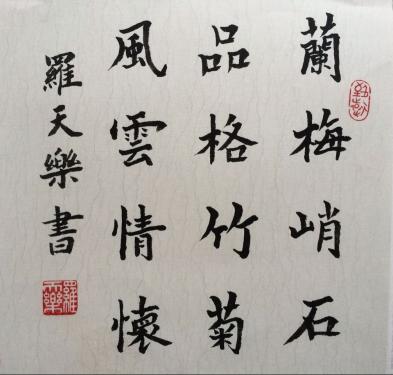 蘭梅峭石
品格竹菊
風雲情懷
羅天樂書